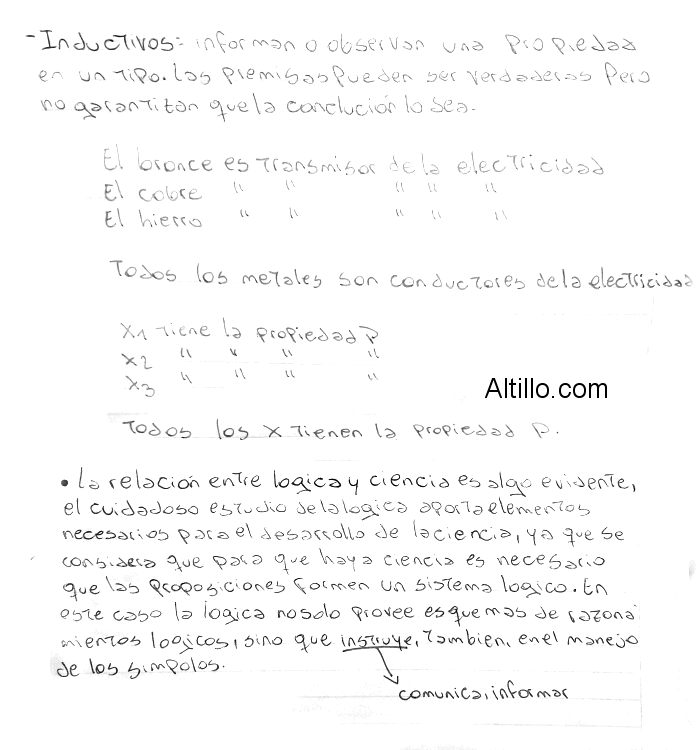 - Inductivos: informan o observan una propiedad
en un tipo. Las premisas pueden ser verdaderas pero
no garantitan que la conclución lo sea.
El bronce es transmisor de la electricidad
El cobre " " " " "
El hierro " " " " "
Todos los metales son conductores de la electricidad
X1 tiene la propiedad P
X2 " " " "
X3 " " " "
Altillo.com
Todos los X tienen la propiedad P.
• La relación entre logica y ciencia es algo evidente,
el cuidadoso estudio de la logica aporta elementos
necesarios para el desarrollo de la ciencia, ya que se
considera que para que haya ciencia es necesario
que las proposiciones formen un sistema logico. En
este caso la logica no solo provee esquemas de razona
mientos logicos, sino que instruye, tambien, en el manejo
de los simpolos.
comunica, informar